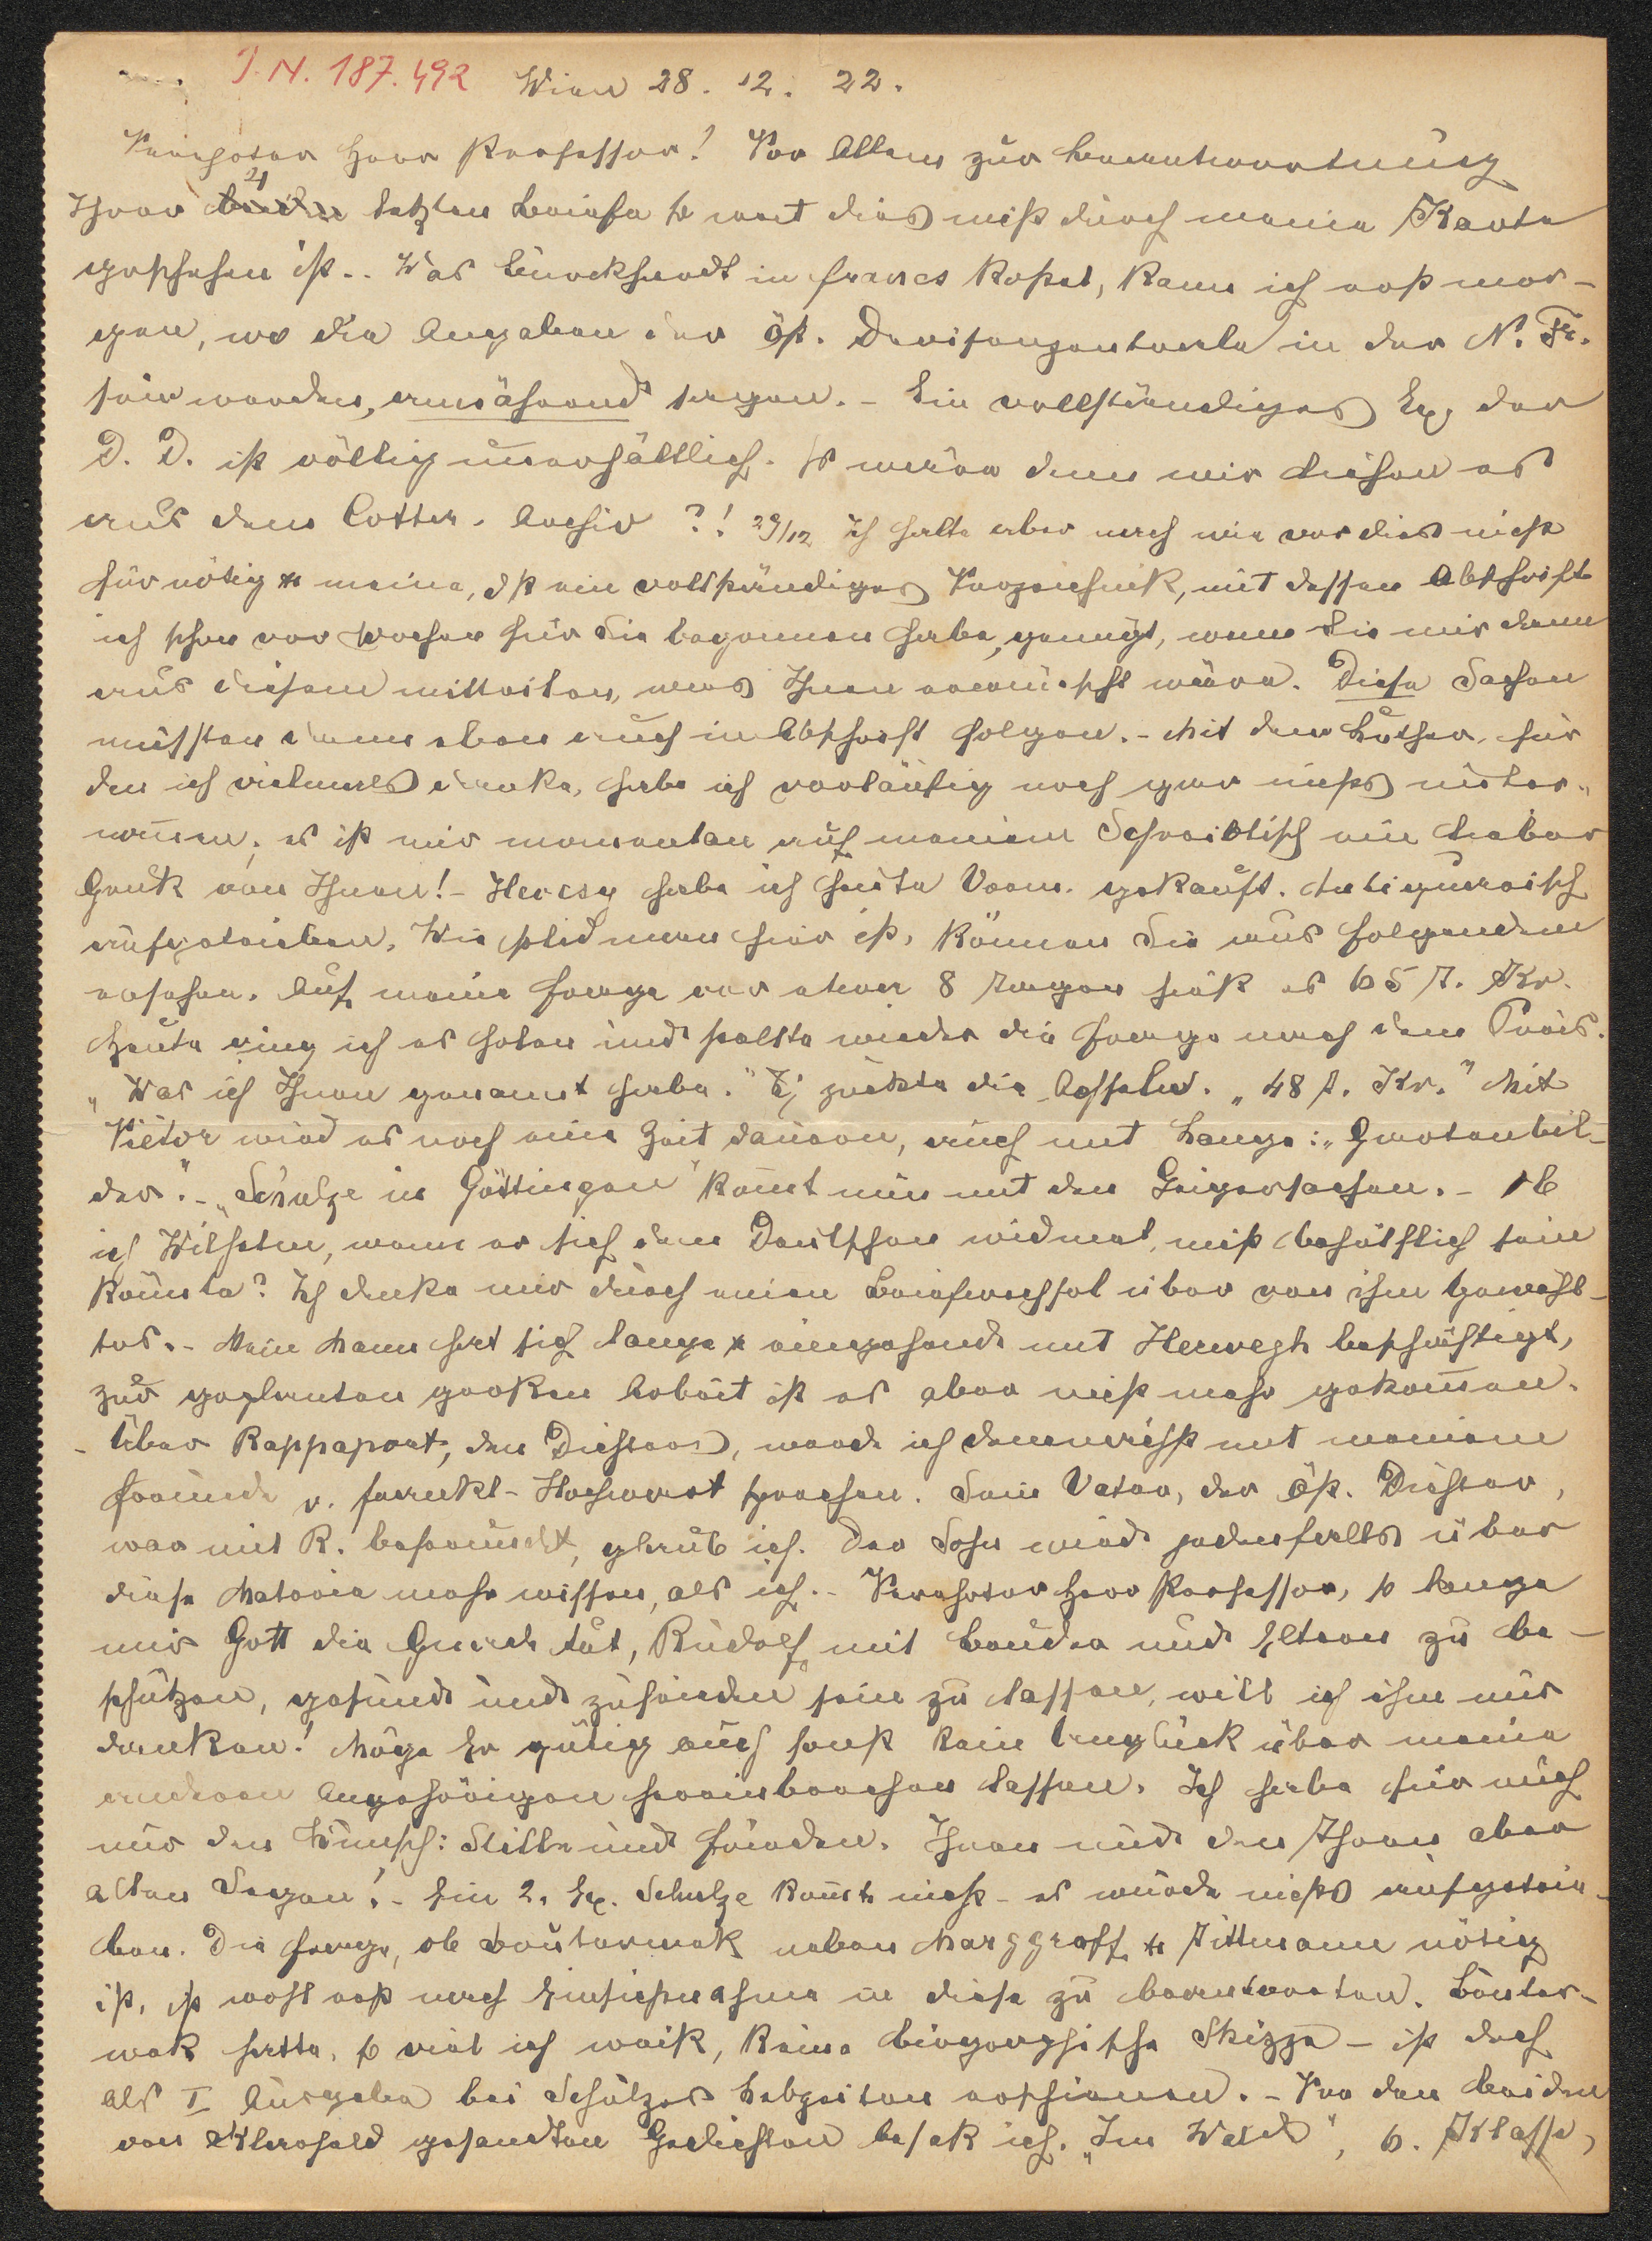 I.N. 187.492 Wien 28. 12. 22.
Verehrter Herr Professor! Vor Allem zur Beantwortung
Ihrer 4 letzten Briefe so weit dies nicht durch meine Karte
geschehen ist. . Was Burckhardt in francs kostet, kann ich erst mor-
gen, wo die Angaben der öst. Devisenzentrale in der N. Fr.
sein werden, annähernd sagen. - Ein vollständiges Ex. der
D. D. ist völlig unerhältlich. So wäre denn wir liehen es
aus dem Cotta. Archiv ?! 29/12 Ich halte aber nach wie vor dies nicht
für nötig u meine, dß ein vollständiges Verzeichniß, mit dessen Abschrift
ich schon vor Wochen für Sie begonnen habe, genügt, wenn Sie mir dann
aus diesem mitteilen, was Ihnen erwünscht wäre. Diese Sachen
müssten dann eben auch in Abschrift folgen. - Mit dem Luther, für
den ich vielmals danke, habe ich vorläufig noch gar nichts unter-
nommen; er ist mir momentan auf meinem Schreibtisch ein lieber
Gruß von Ihnen! - Hevesy habe ich heute Vorm. gekauft. Antiquarisch
aufgetrieben. Wie solid man hier ist, können Sie aus folgendem
ersehen. Auf meine Frage vor etwa 8 Tagen hieß es 65 T. Kr.
Heute ging ich es holen und stellte wieder die Frage nach dem Preis.
„Was ich Ihnen genannt habe." Ich zuckte die Achseln. „48 T. Kr." Mit
Vietor wird es noch eine Zeit dauern, auch mit Lange: „Gartenbil-
der". - „Schulze in Göttingen" kommt nun mit den Geigersachen. - Ob
ich Wilhelm, wenn er sich dem Deutschen widmet, nicht behülflich sein
könnte? Ich denke mir durch einen Briefwechsel über von ihm Gewähl-
tes. - Mein Mann hat sich lange u eingehend mit Herwegh beschäftigt,
zur geplanten großen Arbeit ist es aber nicht mehr gekommen.
- Über Rappaport, den Dichter, werde ich demnächst mit meinem
Freunde v. Frankl-Hochwart sprechen. Sein Vater, der öst. Dichter,
war mit R. befreundet, glaub ich. Der Sohn wird jedenfalls über
diese Materie mehr wissen, als ich. - Verehrter Herr Professor, so lange
mir Gott die Gnade tut, Rudolf mit Bruder und Eltern zu be-
schützen, gesund und zufrieden sein zu lassen, will ich ihm nur
danken! Möge Er gütig auch sonst kein Unglück über meine
anderen Angehörigen hereinbrechen lassen. Ich habe für mich
nur den Wunsch: Stille und Frieden. Ihnen und den Ihren aber
allen Segen! - Ein 2. Ex. Schulze kommt nicht - es wurde nichts aufgetrie-
ben. Die Frage, ob Bouterwek neben Marggraff u Tittmann nötig
ist, ist wohl erst nach Einsichtnahme in diese zu beantworten. Bouter-
wek hatte, so viel ich weiß, keine biographische Skizze - ist doch
als I Ausgabe bei Schulzes Lebzeiten erschienen. - Von den beiden
von Elberfeld gesandten Gedichten besaß ich. „Im Wald", 6. Klasse,